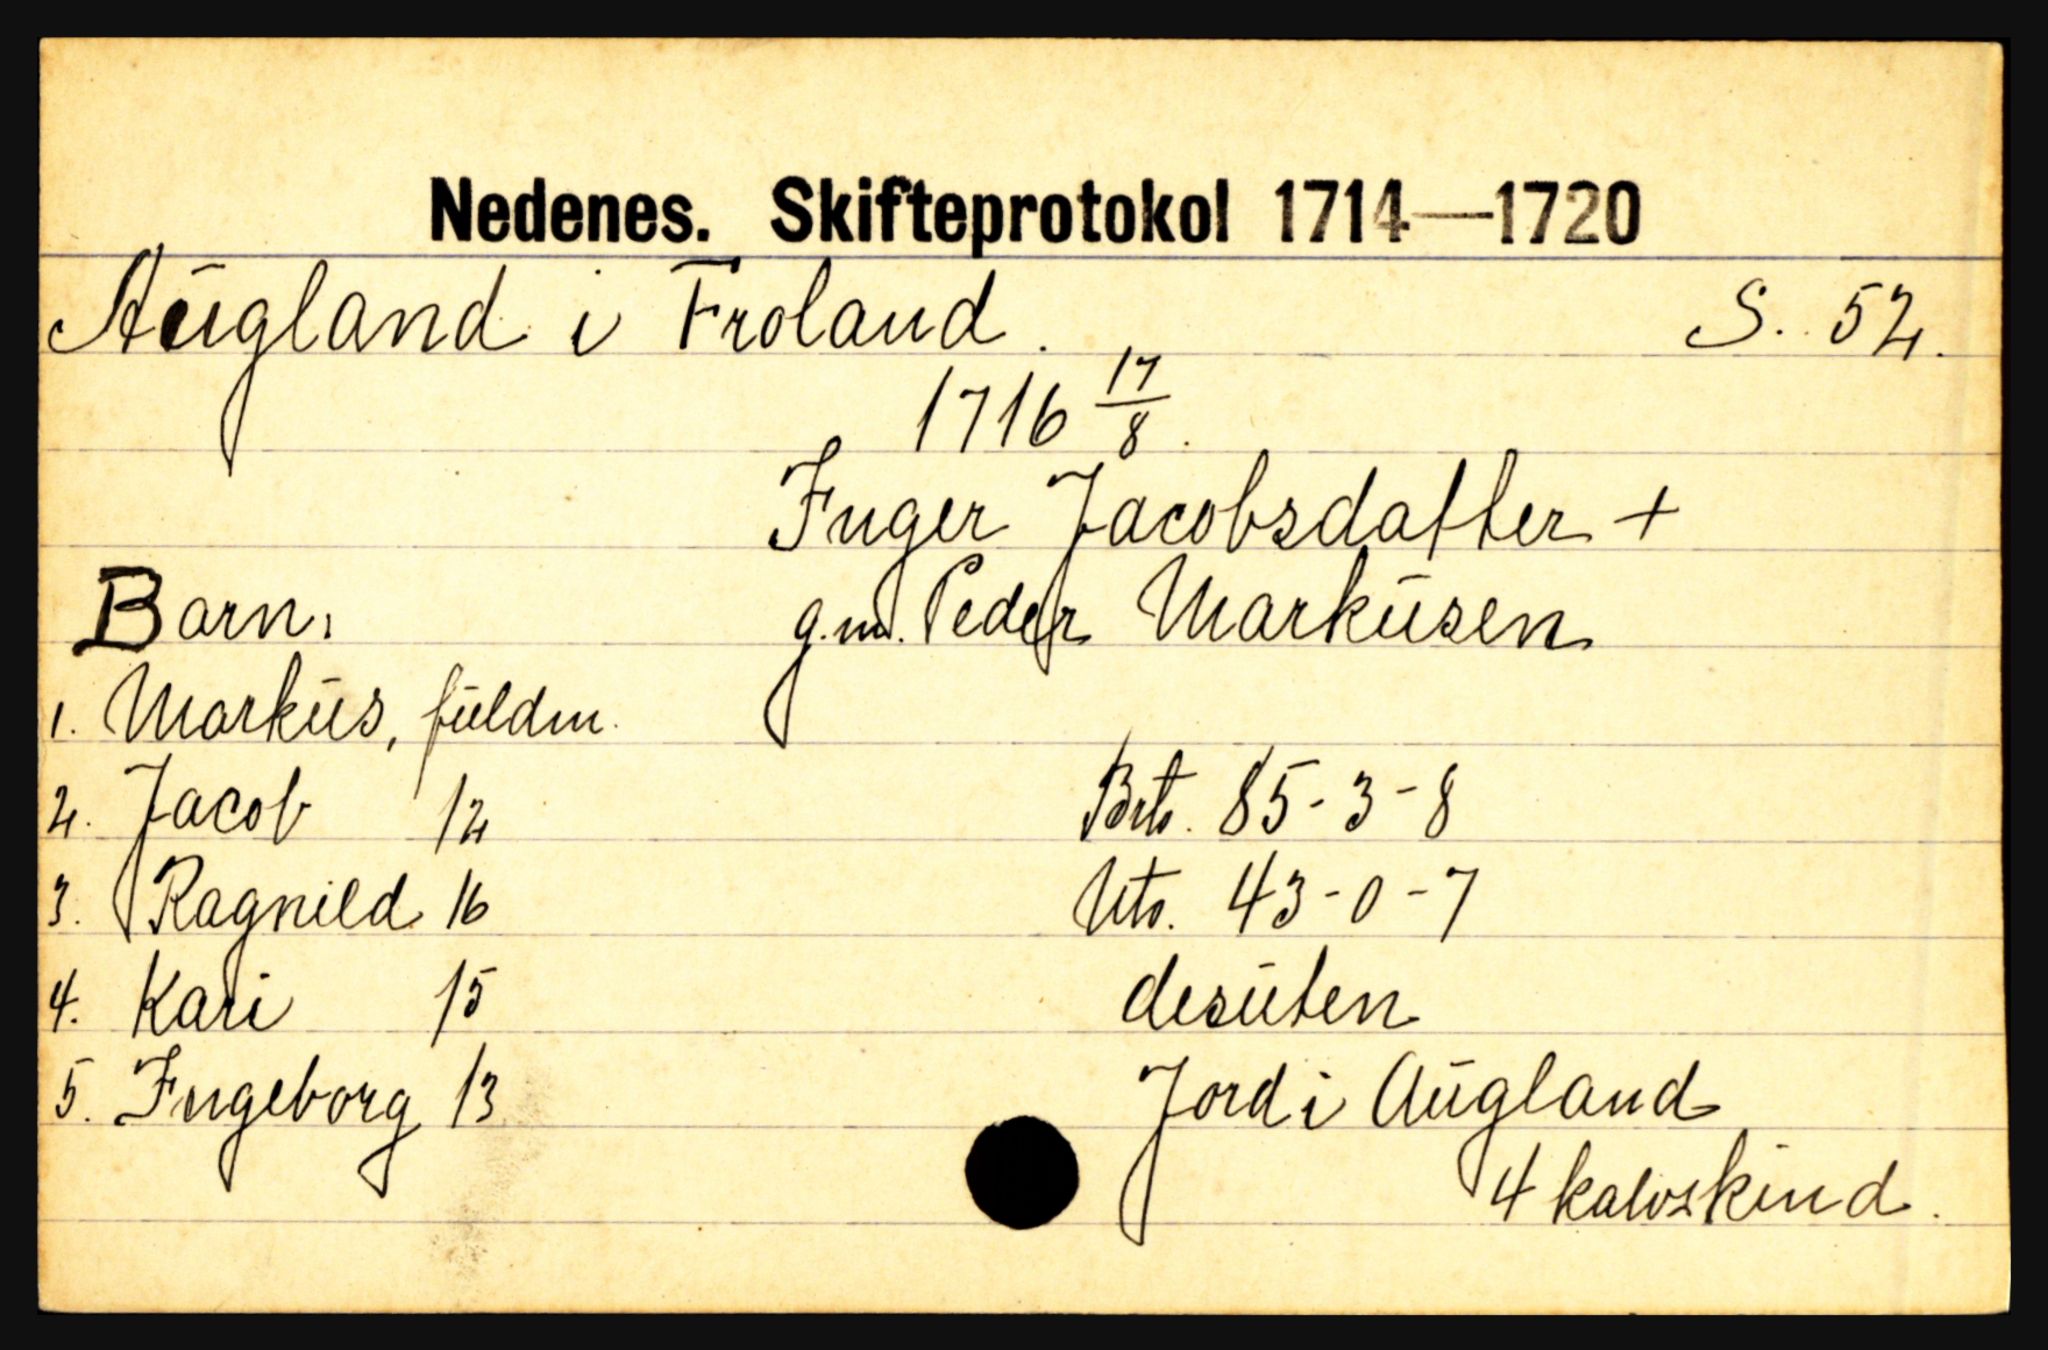 Nedenes. Skifteprotokol 1714—1720
Augland i Froland. S. 52.
1716 17/8.
Inger Jacobsdatter +
Barn: g.m. Peder Markusen
1. Markus, fuldm.
2. Jacob 12 Brto. 85-3-8
3. Ragnild 16 Nto. 43-0-7
4. Kari 15 desuten
5. Ingeborg 13 Jord i Augland
4 kalvskind.